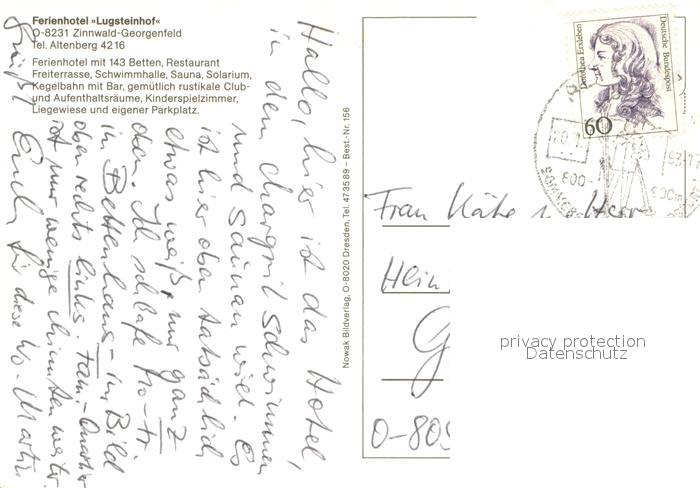 Ferienhotel »Lugsteinhof«
O-8231 Zinnwald-Georgenfeld
Tel. Altenberg 4216
Ferienhotel mit 143 Betten, Restaurant
Freiterrasse, Schwimmhalle, Sauna, Solarium,
Kegelbahn mit Bar, gemütlich rustikale Club-
und Aufenthaltsräume, Kinderspielzimmer,
Liegewiese und eigener Parkplatz.
Hallo, hier ist das Hotel,
in dem Margrit schwimmen
und saunan wird. Es
ist hier oben tatsächlich
etwas weiß, nur ganz
oben. Ich schlafe
in Bettenhaus – im Bild
oben rechts links. Fam.-Quartier
ist nur wenige Minuten weiter.
Grüßt Euch
Nowak Bildverlag, O-8020 Dresden, Tel. 473589 – Best.-Nr. 156
Dorothea Erxleben
Deutsche Bundespost
60
Frau Käthe u. Herr
Hein
G
O-809
privacy protection
Datenschutz